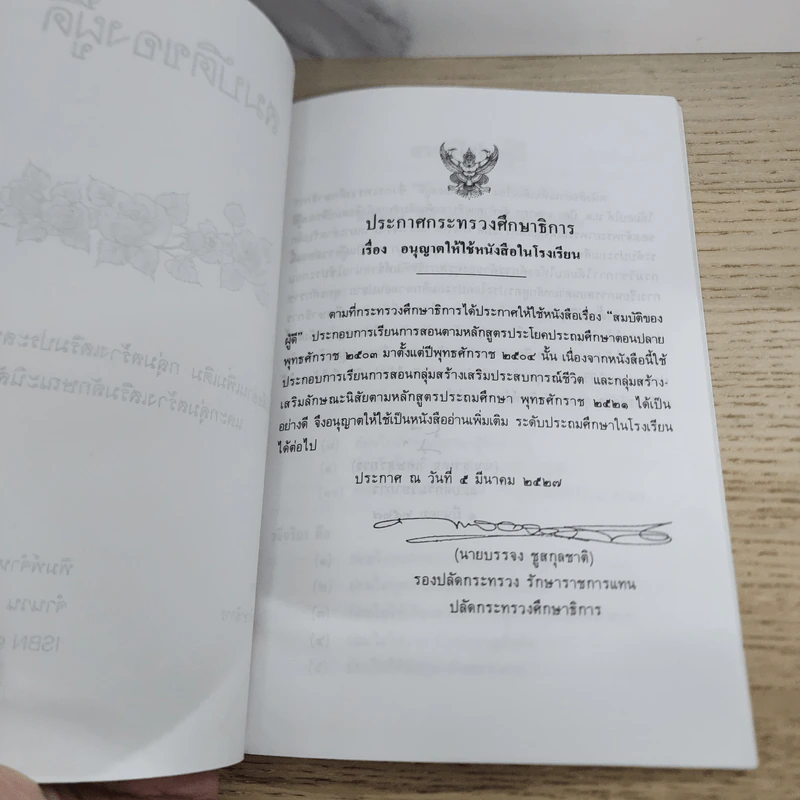 ประกาศกระทรวงศึกษาธิการ
เรื่อง อนุญาตให้ใช้หนังสือในโรงเรียน
ตามที่กระทรวงศึกษาธิการได้ประกาศให้ใช้หนังสือเรื่อง "สมบัติของ
ผู้ดี" ประกอบการเรียนการสอนตามหลักสูตรประโยคประถมศึกษาตอนปลาย
พุทธศักราช ๒๕๐๓ มาตั้งแต่ปีพุทธศักราช ๒๕๐๔ นั้น เนื่องจากหนังสือนี้ใช้
ประกอบการเรียนการสอนกลุ่มสร้างเสริมประสบการณ์ชีวิต และกลุ่มสร้าง-
เสริมลักษณะนิสัยตามหลักสูตรประถมศึกษา พุทธศักราช ๒๕๒๑ ได้เป็น
อย่างดี จึงอนุญาตให้ใช้เป็นหนังสืออ่านเพิ่มเติม ระดับประถมศึกษาในโรงเรียน
ได้ต่อไป
ประกาศ ณ วันที่ ๕ มีนาคม ๒๕๒๗
(นายบรรจง ชูสกุลชาติ)
รองปลัดกระทรวง รักษาราชการแทน
ปลัดกระทรวงศึกษาธิการ